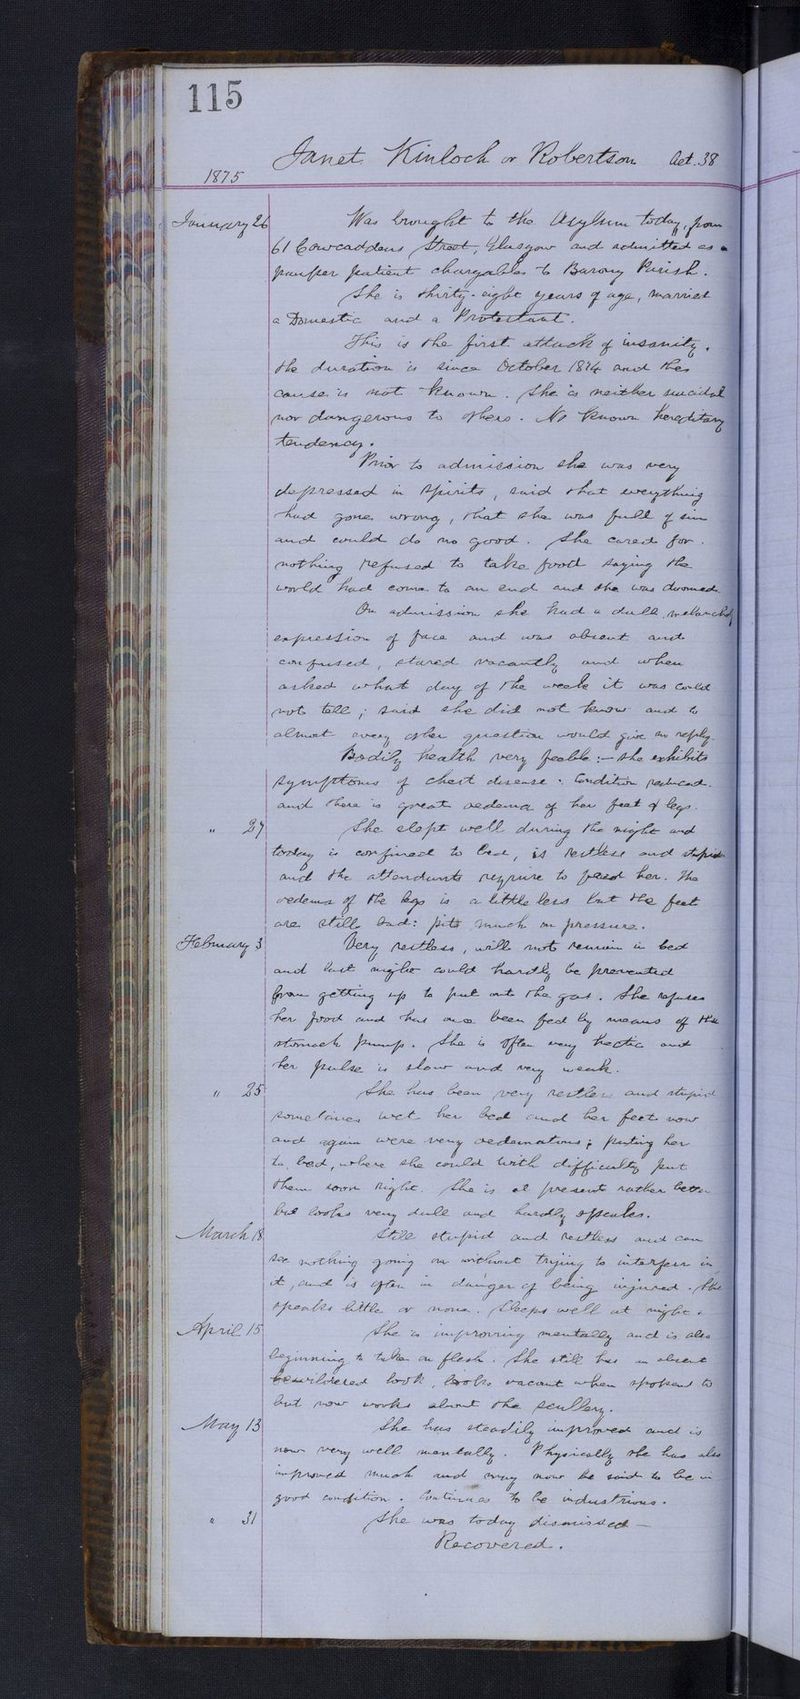 115
Janet Kinloch or Robertson Aet. 38
1875
January 26 Was brought to the Asylum today, from
61 Cowcaddens Street, Glasgow and admitted as a
pauper patient chargeable to Barony Parish.
She is thirty-eight years of age, married
a Domestic and a Protestant.
This is the first attack of insanity.
the duration is since October 1874 and the
cause is not known. She is neither suicidal
nor dangerous to others. No known hereditary
tendency.
Prior to admission she was very
depressed in spirits, said that everything
had gone wrong, that she was full of sin
and could do no good. She cared for
nothing refused to take food saying the
world had come to an end and she was doomed.
On admission she had a dull, melancholy
expression of face and was absent and
confused, stared vacantly and when
asked what day of the week it was could
not tell; said she did not know and to
almost every other question would give no reply.
Bodily health very feeble:- she exhibits
symptoms of chest disease. Condition reduced.
and there is great oedema of her feet & legs.
" 27 She slept well during the night and
today is confined to bed, is restless and stupid
and the attendants require to feed her. The
oedema of the legs is a little less but the feet
are still bad: pits much on pressure.
February 3 Very restless, will not remain in bed
and last night could hardly be prevented
from getting up to put out the gas. She refuses
her food and has once been fed by means of the
stomach pump. She is often very hectic and
her pulse is slow and very weak.
" 25 She has been very restless and stupid
sometimes wet her bed and her feet now
and again were very oedematous; putting her
to bed, where she could with difficulty put
them soon right. She is at present rather better
but looks very dull and hardly speaks.
March 18 Still stupid and restless and can
see nothing going on without trying to interfere in
it, and is often in danger of being injured. She
speaks little or none. Sleeps well at night.
April 15 She is improving mentally and is also
beginning to take on flesh. She still has an absent
bewildered look, looks vacant when spoken to
but now works about the scullery.
May 13 She has steadily improved and is
now very well mentally. Physically she has also
improved much and may now be said to be in
good condition. Continues to be industrious.
" 31 She was today dismissed —
Recovered.